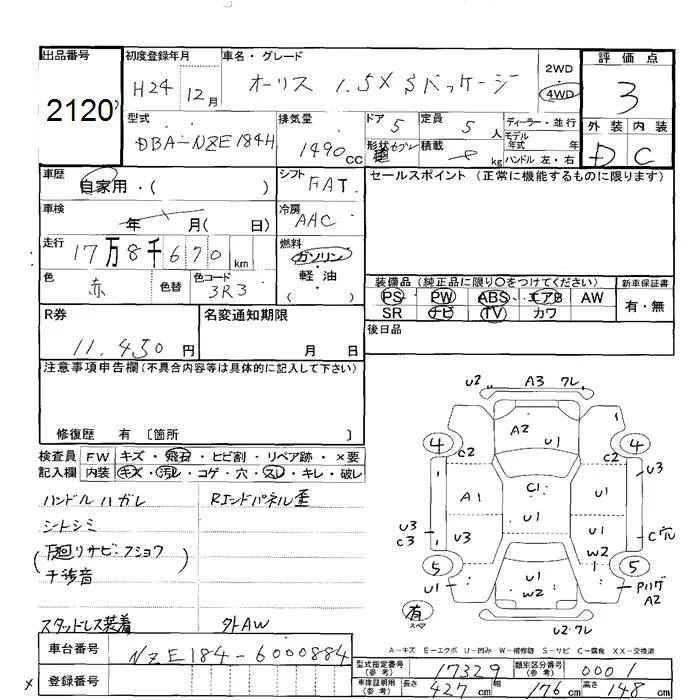 出品番号 初度登録年月 車名・グレード 2WD 評価点
2120 H24 12月 オーリス 1.5X Sパッケージ 4WD 3
型式 排気量 ドア 5 定員 5人 ディーラー・並行 外装 内装
DBA-NZE184H 1490cc 形状 積載 kg モデル年式 年 D C
ハンドル 左・右
車歴 シフト セールスポイント (正常に機能するものに限ります)
自家用・( ) FAT
車検 年 月( 日) 冷房 AAC
走行 17万8千670km 燃料
ガソリン・軽油
( )
色 赤 色替 色コード 3R3
装備品 (純正品に限り○をつけてください) 新車保証書
PS PW ABS エアB AW 有・無
SR ナビ TV カワ
R券 名変通知期限 後日品
11,450円 月 日
注意事項申告欄(不具合内容等は具体的に記入して下さい)
修復歴 有 〔箇所 〕
検査員 FW キズ・飛石・ヒビ割・リペア跡・×要
記入欄 内装 キズ・汚レ・コゲ・穴・スレ・キレ・破レ
ハンドルハガレ Rエンドパネル歪
シートシミ
(下廻リサビ・フショク)
干渉音
スタッドレス装着 外AW
U2 A3 ワレ
4 4
A2 U1
C2 C2
A1 C1 U1 U3
U3 C3 U3 U1 U1 C穴
W2
5 5
U1 U1 W2 A2
有 スペア
U2ワレ
A-キズ E-エクボ U-凹み W-補修跡 S-サビ C-腐食 XX-交換済
車台番号 NZE184-6000884
登録番号
型式指定番号(参考) 17329 類別区分番号(参考) 0001
車庫証明用(参考) 長さ 427cm 幅 176cm 高さ 148cm